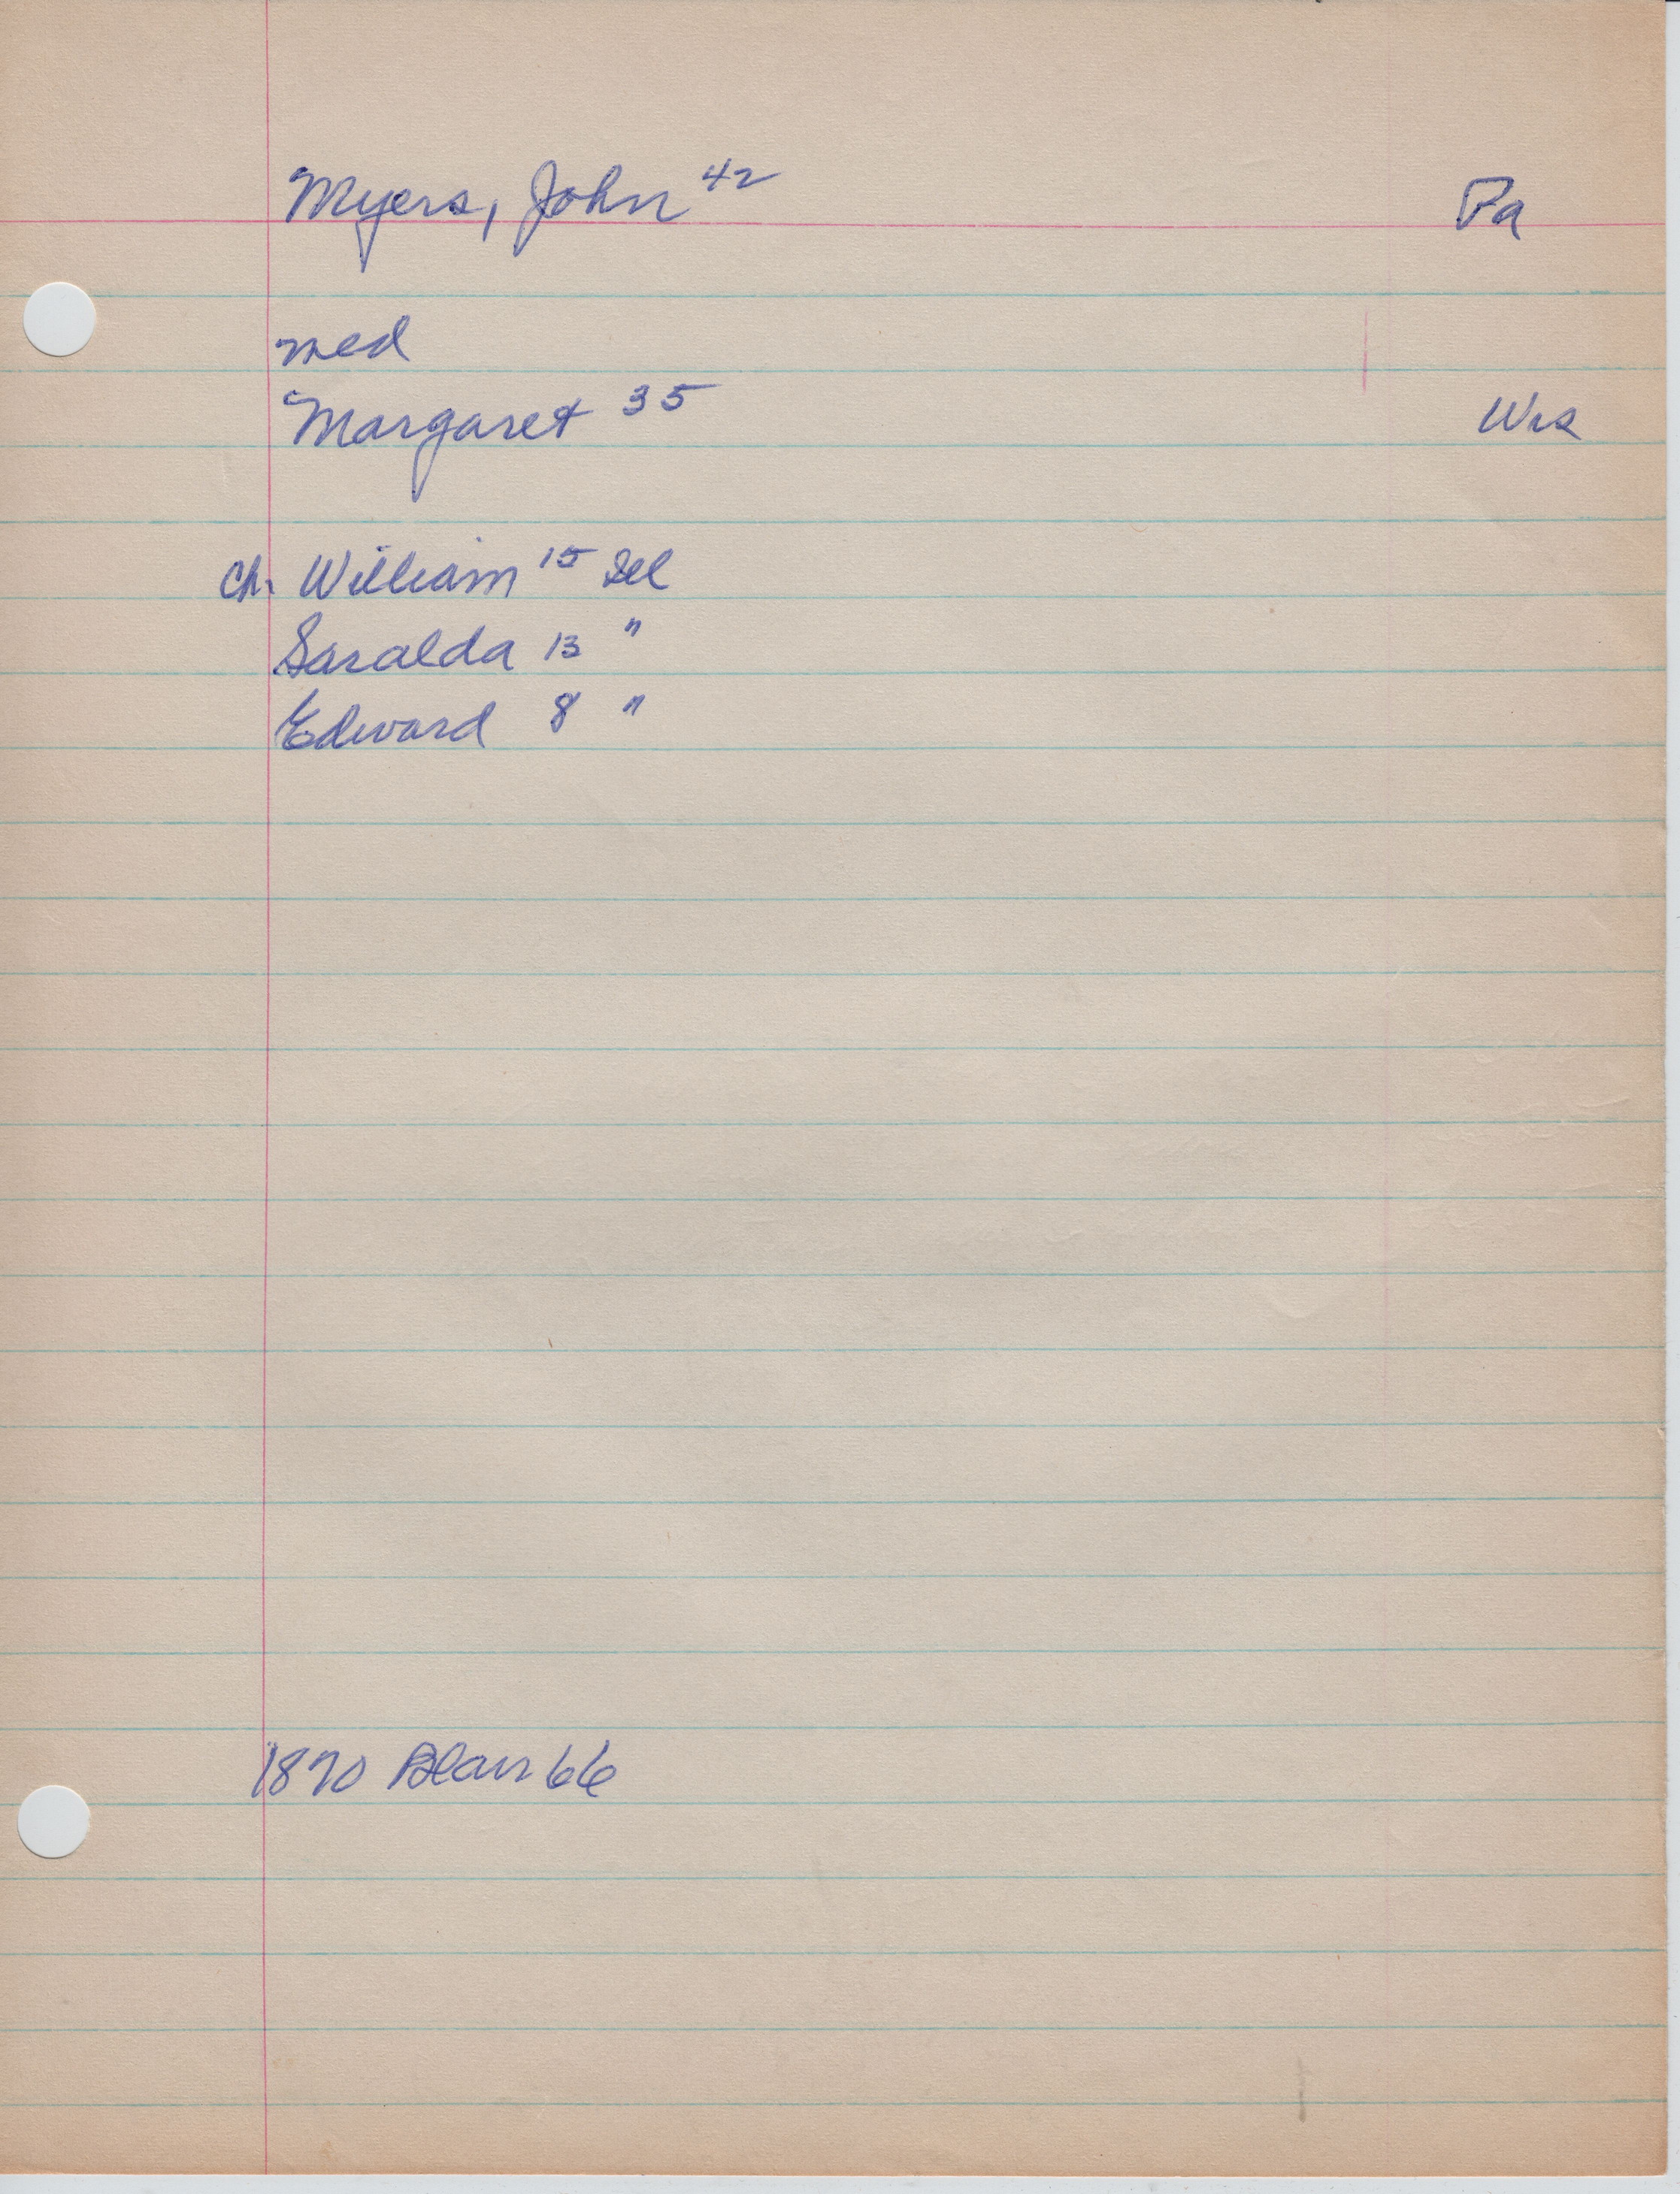 Myers, John 42 Pa
med
Margaret 35 Wis
ch. William 15 Ill
Saralda 13 "
Edward 8 "
1870 Blair 66